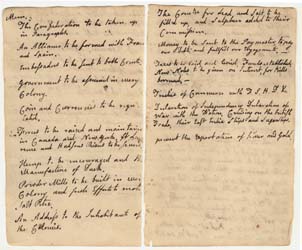 Mem.
The Confederation to be taken up
in Paragraphs.
An Alliance to be formed with France
and Spain.
Embassadors to be sent to both Courts.
Government to be assumed in every
Colony.
Coin and Currencies to be regu-
lated.
Forces to be raised and maintained
in Canada and New York. St. Law-
rence and Hudsons Rivers to be secured.
Hemp to be encouraged and the
Manufacture of Duck.
Powder Mills to be built in every
Colony, and fresh Efforts to make
Salt Petre.
An Address to the Inhabitants of
the Colonies.
The Committee for Lead and Salt to be
filled up, and Sulphur added to their
Commission.
Money to be sent to the Paymaster, to pay
our Debts, and fullfill our Engagements.
Taxes to be laid, and levied, Funds established.
New Notes to be given on Interest, for Bills
borrowed.
Treaties of Commerce with F. S. H. D.
Declaration of Independency, Declaration of
War with the Nation, Cruising on the british
Trade, their East India Ships and Sugar Ships.
prevent the Exportation of Silver and Gold.